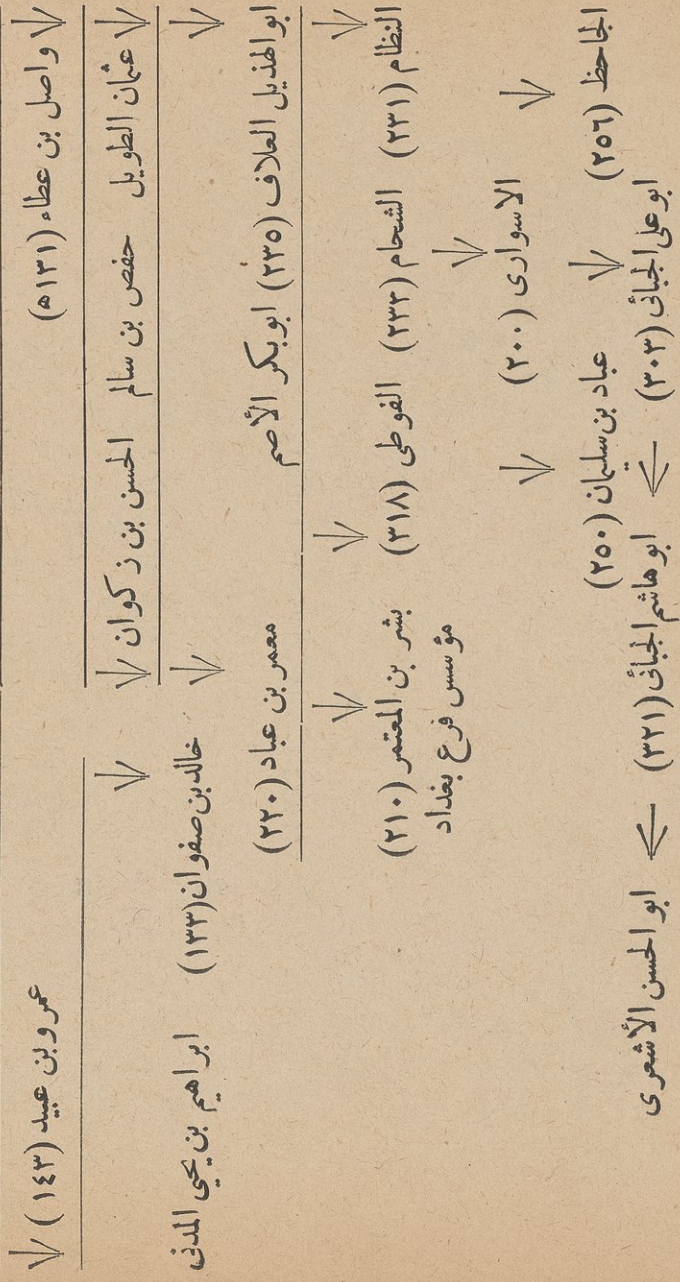 واصل بن عطاء (١٣١ه) عمرو بن عبيد (١٤٣)
عثمان الطويل حفص بن سالم الحسن بن زكوان
خالد بن صفوان (١٣٣) ابراهيم بن يحيى المدنى
ابوالهذيل العلاف (٢٣٥) ابوبكر الأصم معمر بن عباد (٢٢٠)
النظام (٢٣١) الشحام (٢٣٣) الفوطى (٣١٨) بشر بن المعتمر (٢١٠)
مؤسس فرع بغداد
الاسوارى (٢٠٠)
الجاحظ (٢٥٦) عباد بن سليمان (٢٥٠)
ابو على الجبائى (٣٠٣) ابو هاشم الجبائى (٣٢١) ابو الحسن الأشعرى